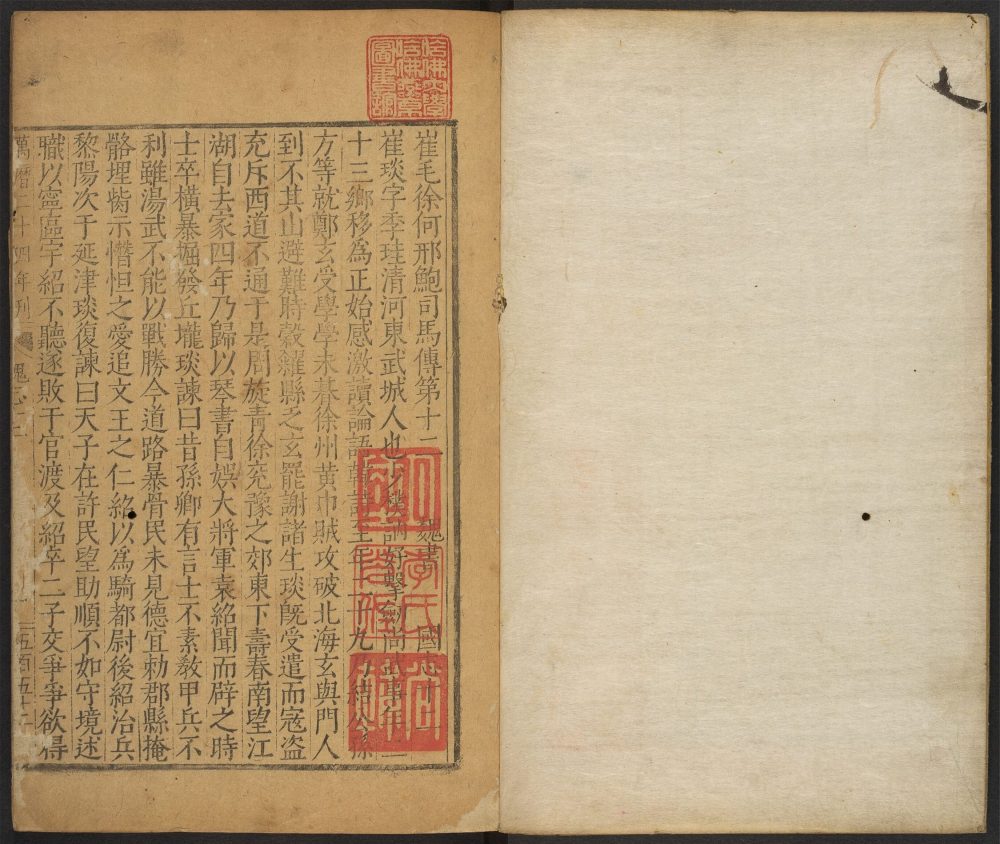 崔毛徐何邢鮑司馬傳第十二　魏書　國志十二
崔琰字季珪清河東武城人也少樸訥好擊劍尚武事年二
十三鄉移為正始感激讀論語韓詩至年二十九乃結公孫
方等就鄭玄受學學未朞徐州黃巾賊攻破北海玄與門人
到不其山避難時穀糴縣乏玄罷謝諸生琰旣受遣而寇盜
充斥西道不通于是周旋青徐兗豫之郊東下壽春南望江
湖自去家四年乃歸以琴書自娛大將軍袁紹聞而辟之時
士卒橫暴掘發丘壠琰諫曰昔孫卿有言士不素教甲兵不
利雖湯武不能以戰勝今道路暴骨民未見德宜勅郡縣掩
骼埋胔示憯怛之愛追文王之仁紹以爲騎都尉後紹治兵
黎陽次于延津琰復諫曰天子在許民望助順不如守境述
職以寧區宇紹不聽遂敗于官渡及紹卒二子交爭爭欲得
萬曆二十四年刊　魏志十二　五百五十二